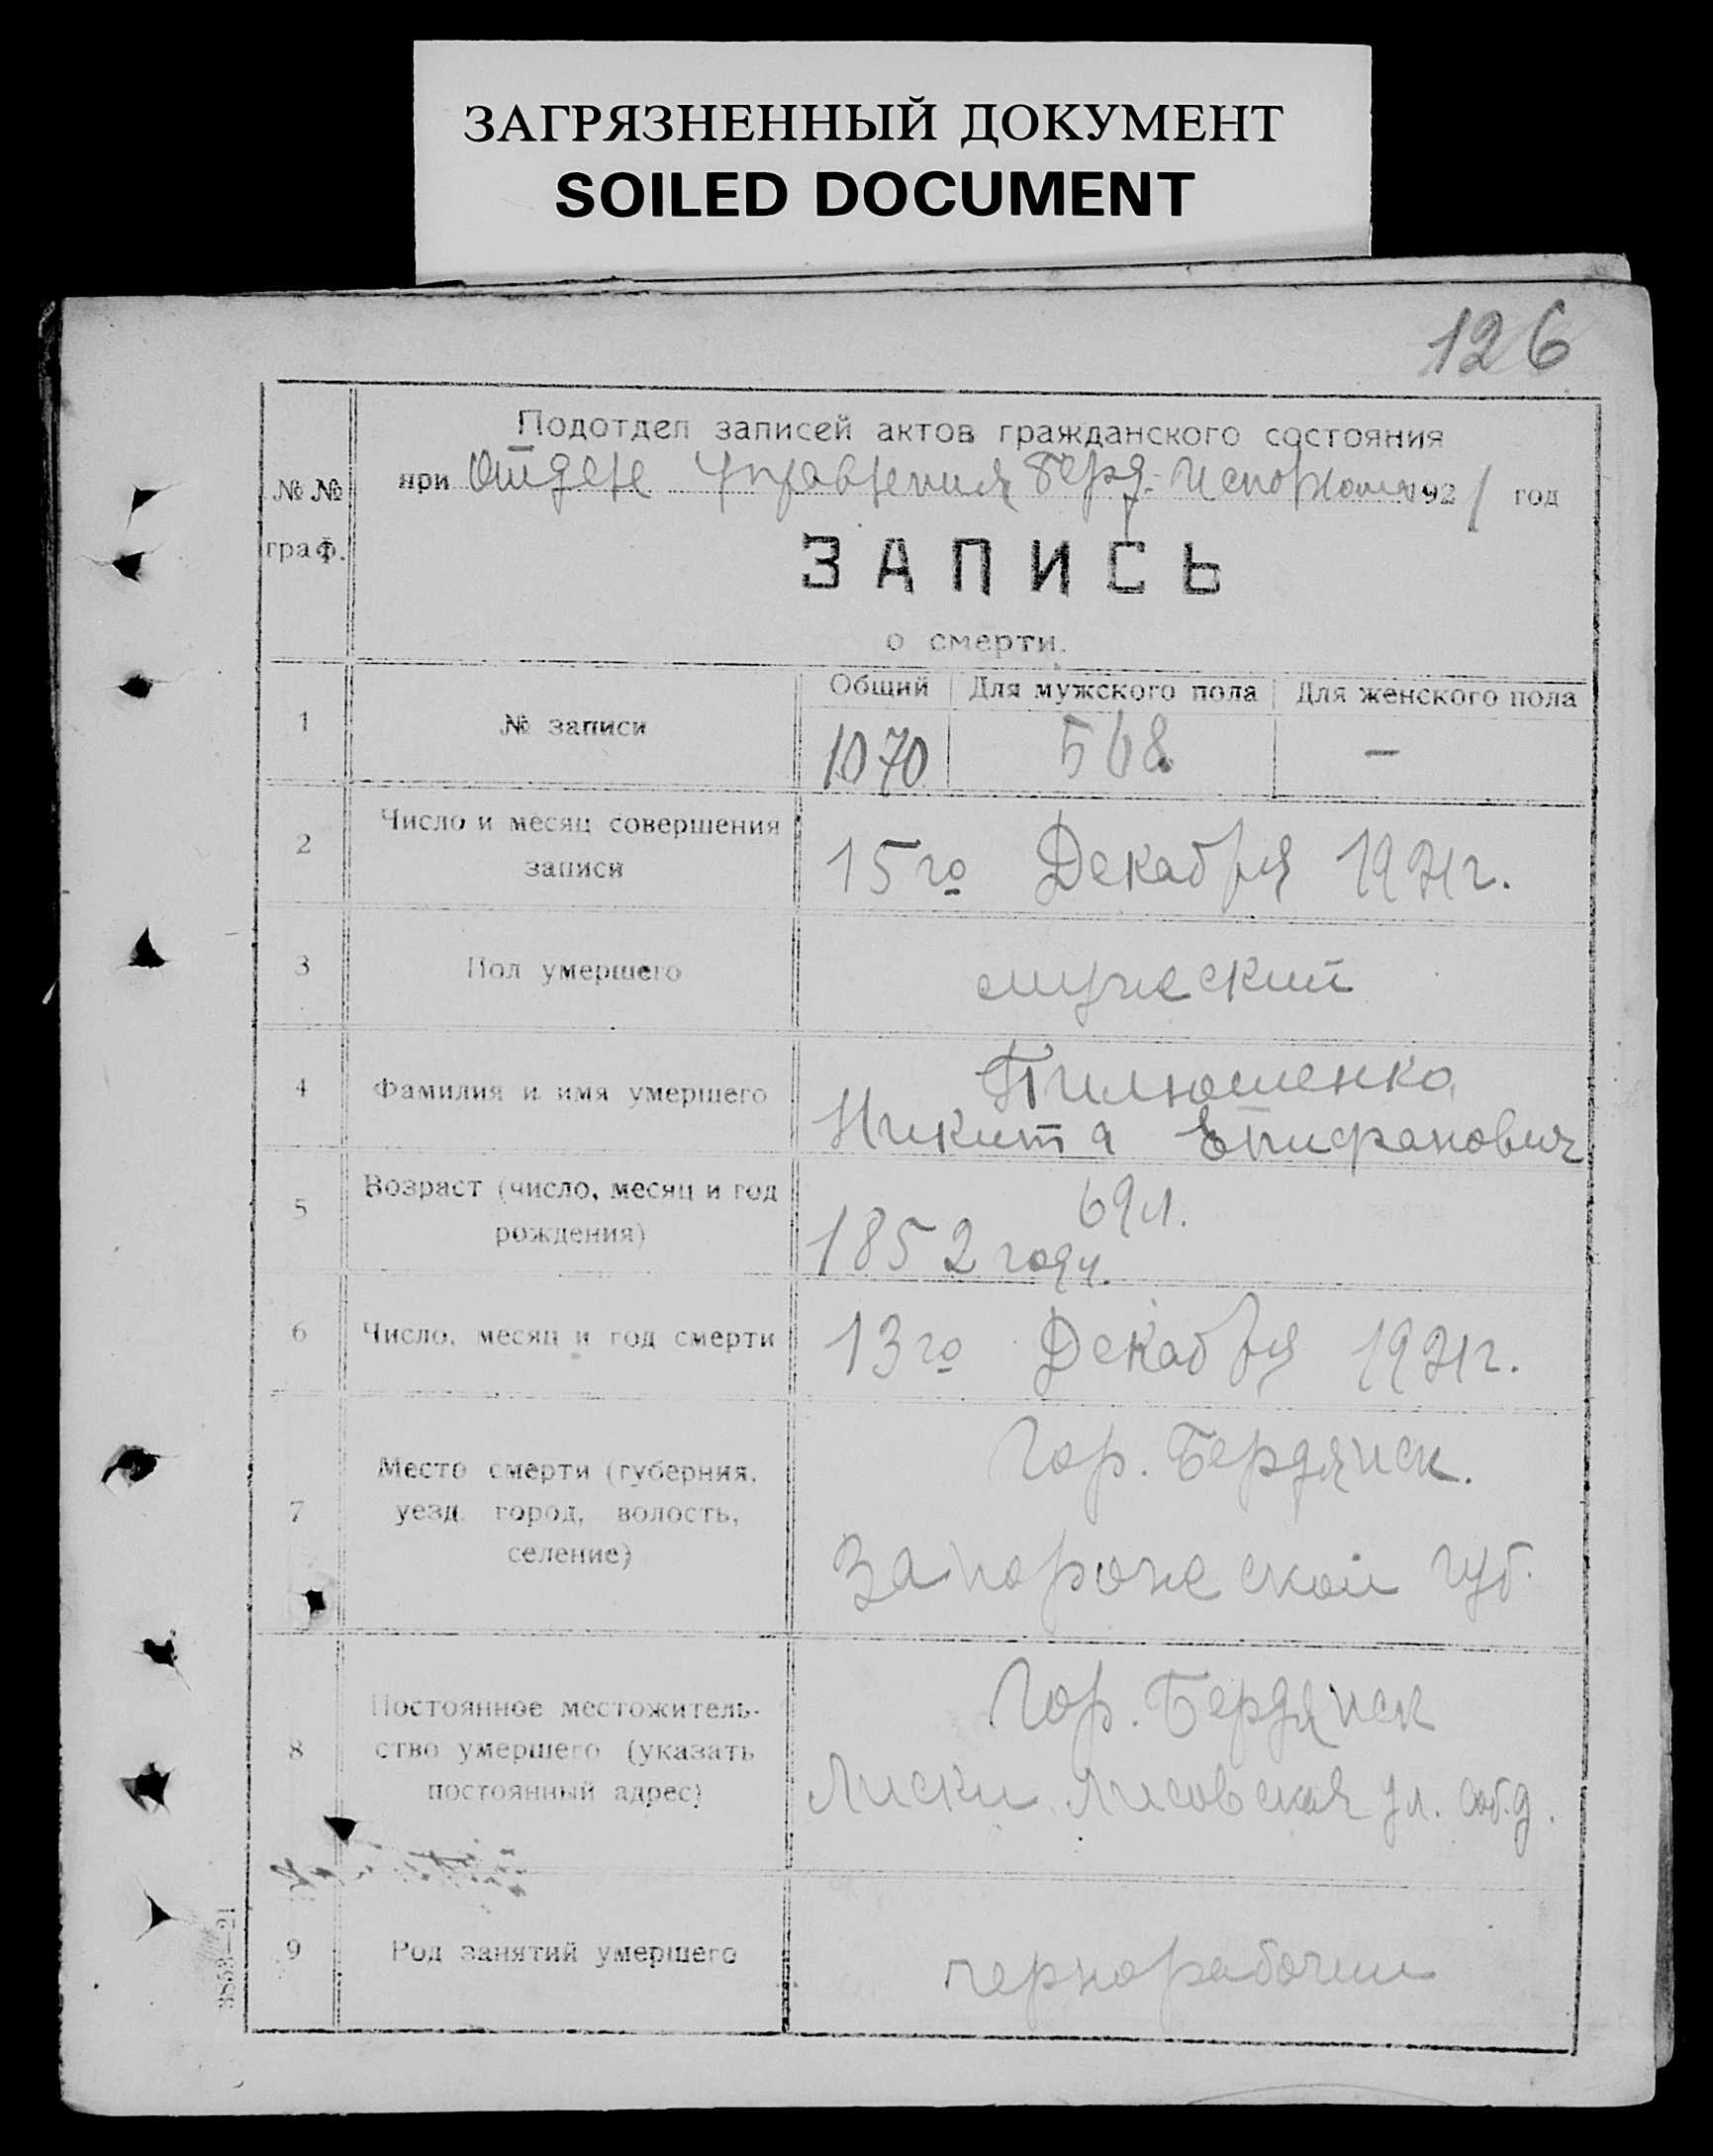 ЗАГРЯЗНЕННЫЙ ДОКУМЕНТ
SOILED DOCUMENT
126
№ № граф.
Подотдел записей актов гражданского состояния
при Отделе Управления Берд. Исполкома 1921 год
ЗАПИСЬ
о смерти.
Общий Для мужского пола Для женского пола
1 № записи 1070 568 —
2 Число и месяц совершения
записи
15го Декабря 1921г.
3 Пол умершего мужеский
4 Фамилия и имя умершего
Пилюшенко
Никита Епифанович
5 Возраст (число, месяц и год
рождения)
69 л.
1852 году.
6 Число, месяц и год смерти 13го Декабря 1921г.
7 Место смерти (губерния,
уезд город, волость,
селение)
Гор. Бердянск.
Запорожеской губ.
8 Постоянное местожитель-
ство умершего (указать
постоянный адрес)
Гор. Бердянск
Лиски Лисовская ул. соб. д.
9 Род занятий умершего чернорабочий
3853—21